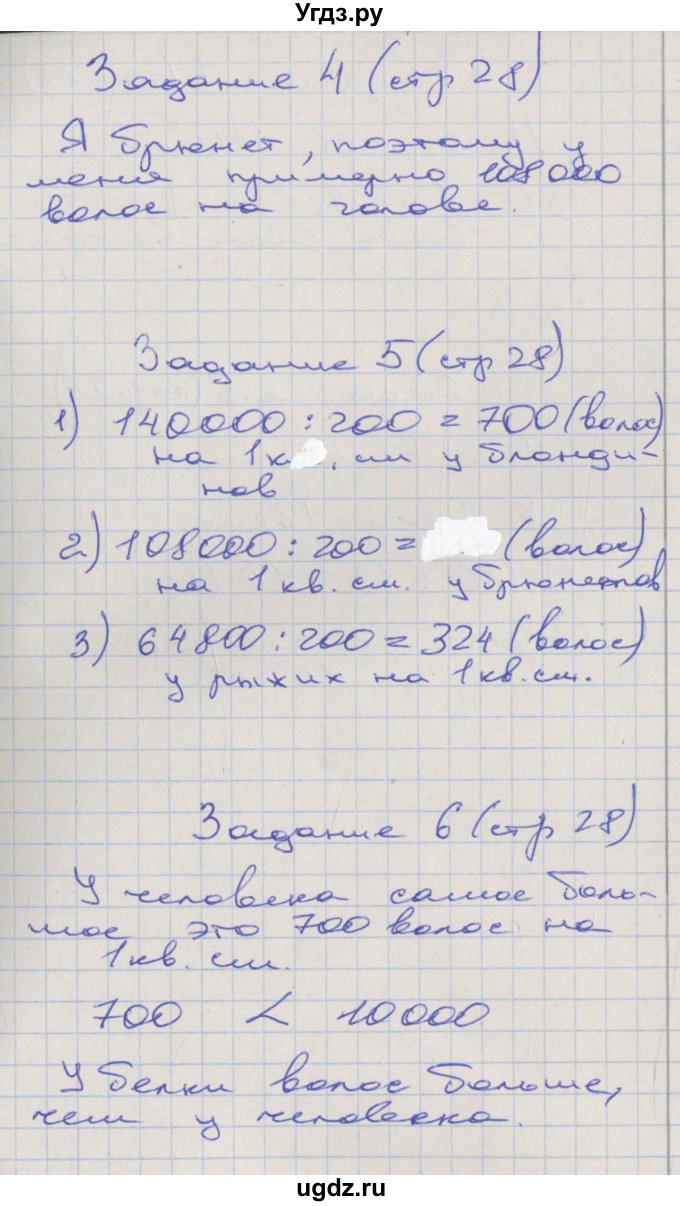 Угдз.ру
Задание 4 (стр 28)
Я брюнет, поэтому у
меня примерно 108000
волос на голове.
Задание 5 (стр 28)
1) 140000 : 200 = 700 (волос)
на 1 к . см у блонди-
нов
2) 108000 : 200 = (волос)
на 1 кв. см. у брюнетов
3) 64800 : 200 = 324 (волос)
у рыжих на 1 кв. см.
Задание 6 (стр 28)
У человека самое боль-
шое это 700 волос на
1 кв. см.
700 < 10000
У белки волос больше,
чем у человека.
ugdz.ru